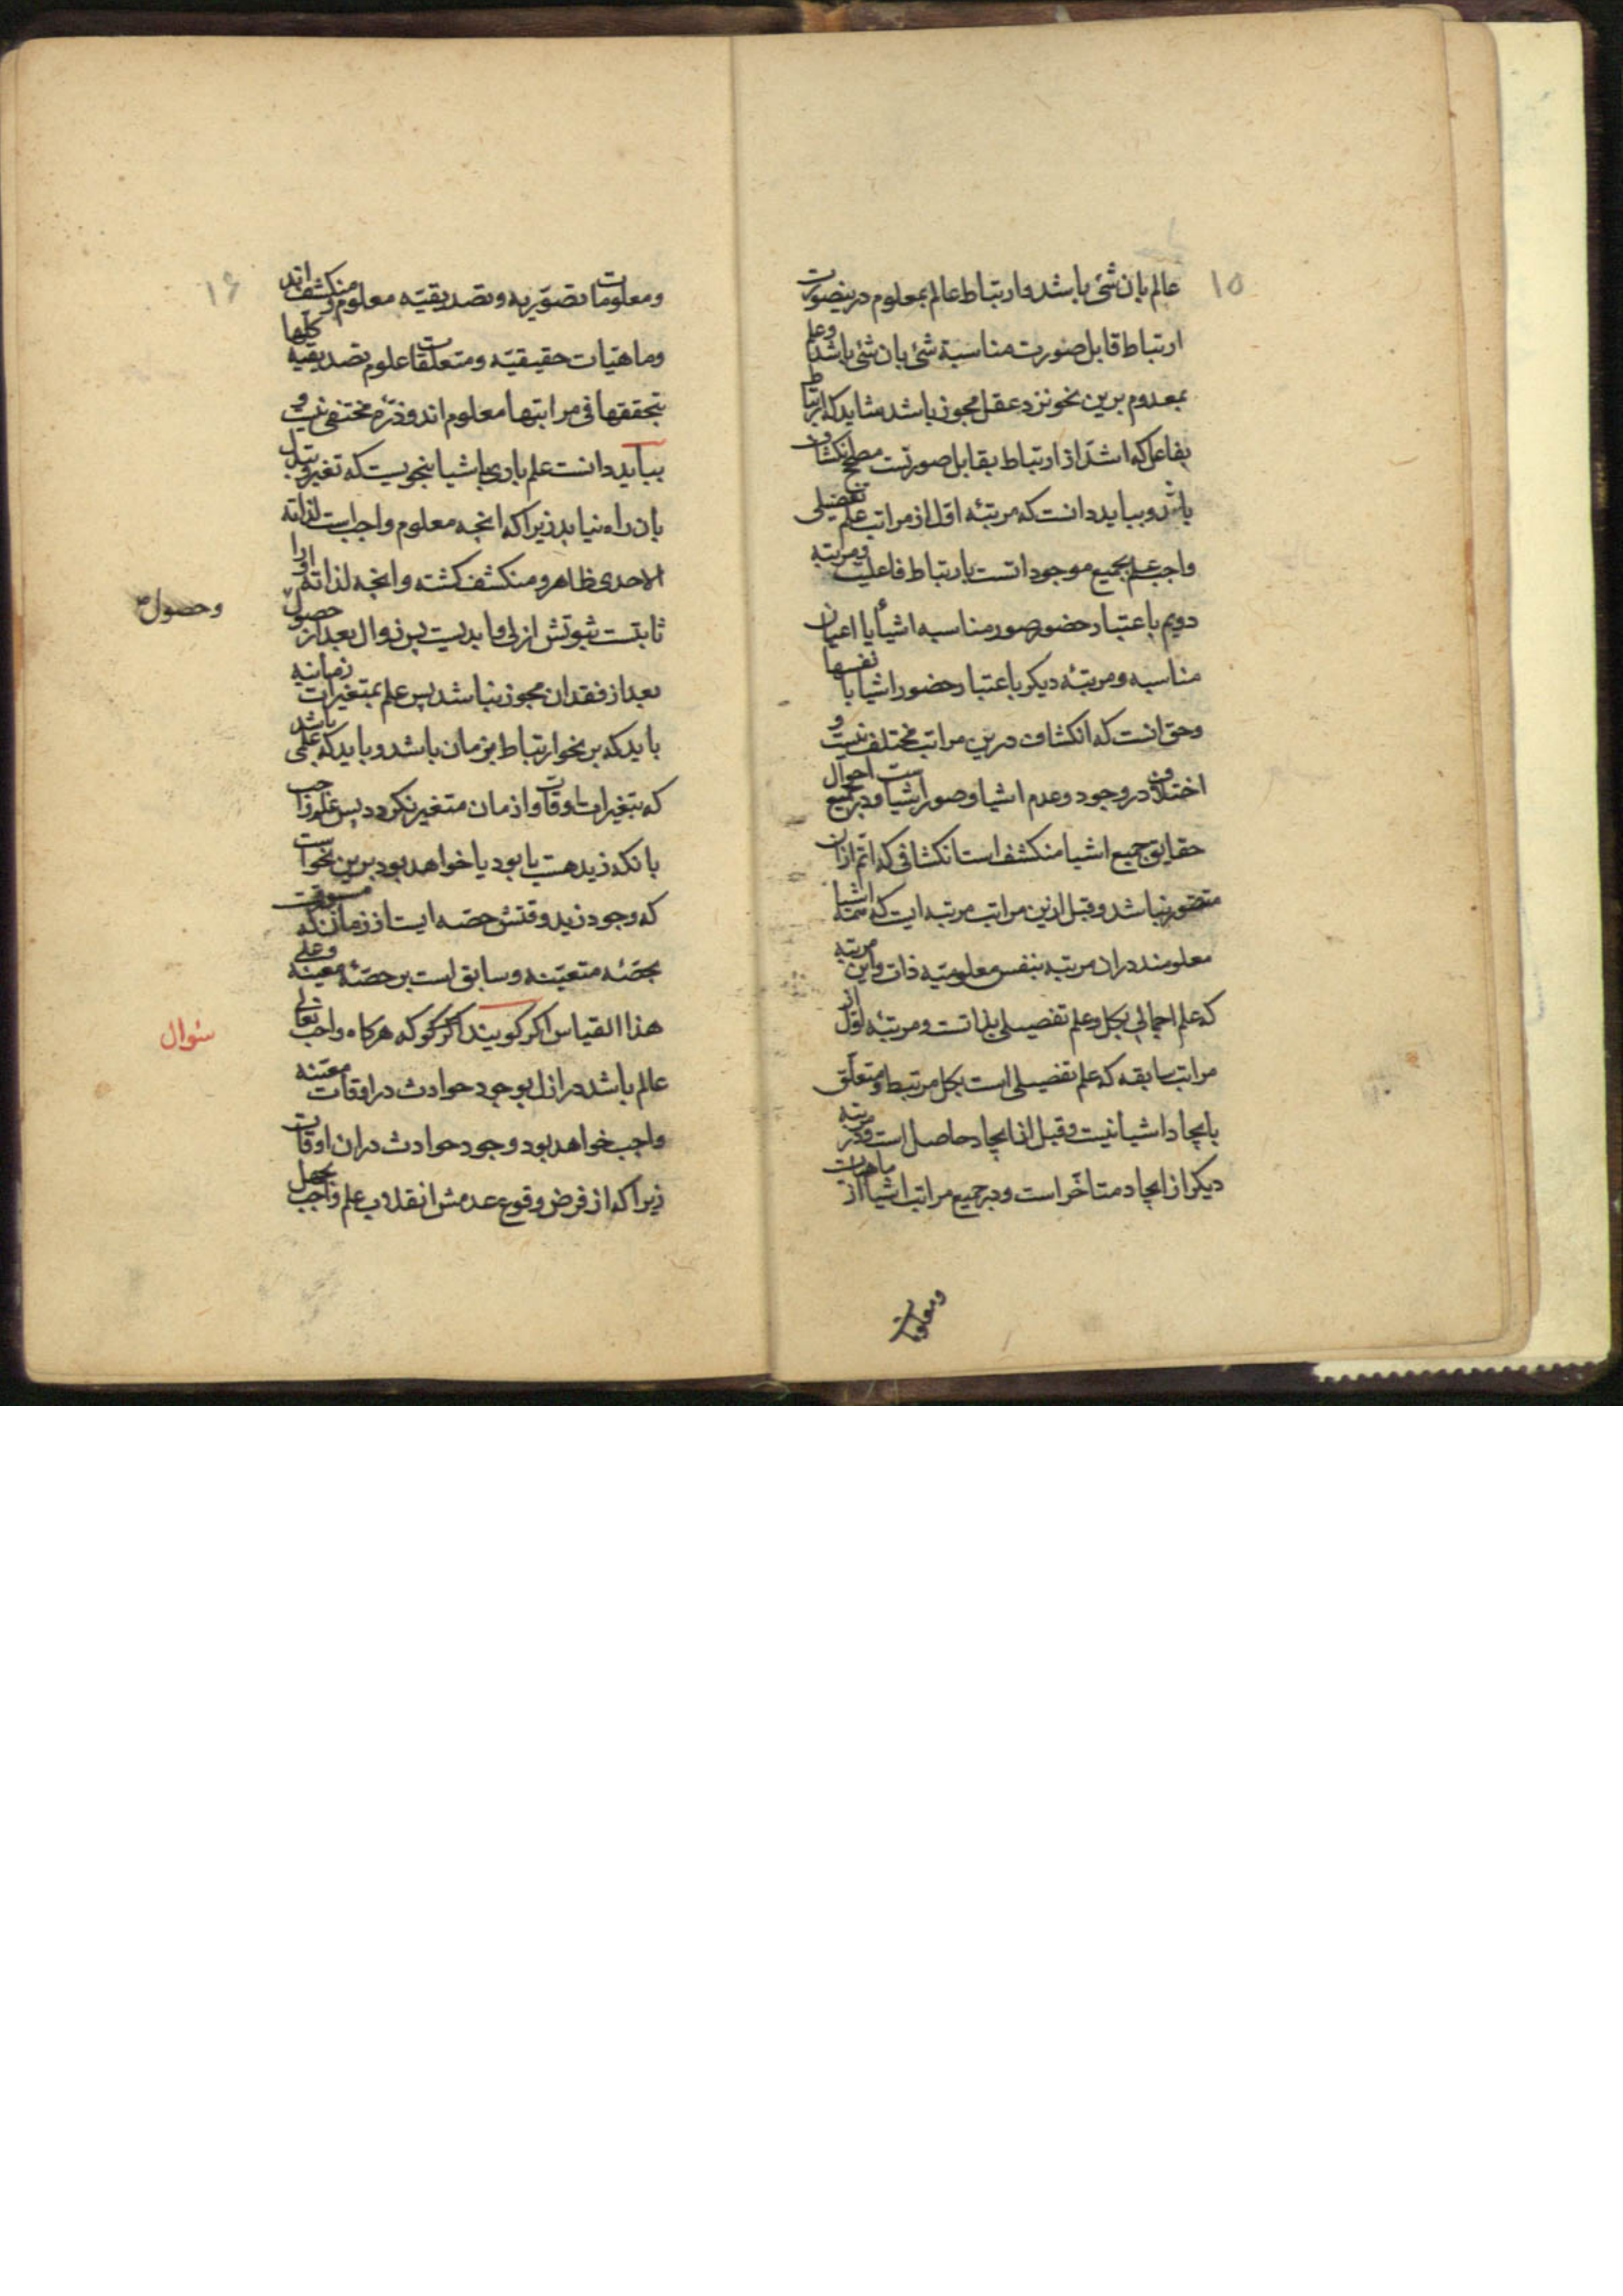 ۱۵
عالم بان شئ باشد و ارتباط عالم بمعلوم درینصورت
ارتباط قابل صورت مناسبة شئ بان شئ باشد و علم
بمعدوم برین نحو نزد عقل مجوز باشد شاید که ارتباط
بفاعل که اشد از ارتباط بقابل صورتست مصحح انکشاف
باشد و بباید دانست که مرتبه اول از مراتب علم تفضیلی
واجب علم بجمیع موجوداتست بارتباط فاعلیت و مرتبه
دویم باعتبار حضور صور مناسبه اشیا یا اعیان
مناسبه و مرتبه دیکر باعتبار حضور اشیا با نفسها
و حق انست که انکشاف درین مراتب مختلف نیست و
اختلاف در وجود و عدم اشیا و صور اشیاست و در جمیع احوال
حقایق جمیع اشیا منکشف است انکشافی که اتم ازان
متصور نباشد و قبل ازین مراتب مرتبه ایست که همه اشیا
معلومند دران مرتبه بنفس معلومیّه ذات و این مرتبه
که علم اجمالی بکل و علم تفصیلی بذاتست و مرتبه اول از
مراتب سابقه که علم تفصیلی است بکل مرتبط و متعلق
بایجاد اشیا نیست و قبل از ایجاد حاصل است و در مرتبه
دیکر از ایجاد متاخّر است و در جمیع مراتب اشیا از ماهیات
و معلومات
۱۶
و معلومات تصوّریه و تصدیقیّه معلوم و منکشف اند
و ماهیّات حقیقیّه و متعلقات علوم تصدیقیه کلّها
بتحققها فی مراتبها معلوم اند و ذرّه مختفی نیست و
بباید دانست علم باری باشیا بنحویست که تغیر و تبدل
بان راه نیابد زیرا که انچه معلوم واجب است لذاته
الاحدی ظاهر و منکشف کشته و انچه لذاته او را
ثابتست ثبوتش ازلی و ابدیست پس زوال بعد از حصول
و حصول
بعد از فقدان مجوز نباشد پس علم بمتغیرات زمانیه
باید که بر نحو ارتباط بزمان باشد و باید که علمی باشد
که بتغیرات اوقات و ازمان متغیر نکردد پس علم واجب
بانکه زید هست یا بود یا خواهد بود برین نحو است
که وجود زید وقتش حصه ایست از زمان که مسبوقست
بحصّه متعیّنه و سابق است بر حصّه معینه و علی
هذا القیاس اکر کویند اکر کو که هرکاه واجب تعالی
سئوال
عالم باشد در ازل بوجود حوادث در اوقات معیّنه
واجب خواهد بود وجود حوادث دران اوقات
زیرا که از فرض وقوع عدمش انقلاب علم واجب بجهل